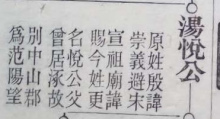 湯悅公
原姓殷諱
崇義避宋
宣祖廟諱
賜今姓更
名悅公父
曾居涿故
別中山郡
為范陽望